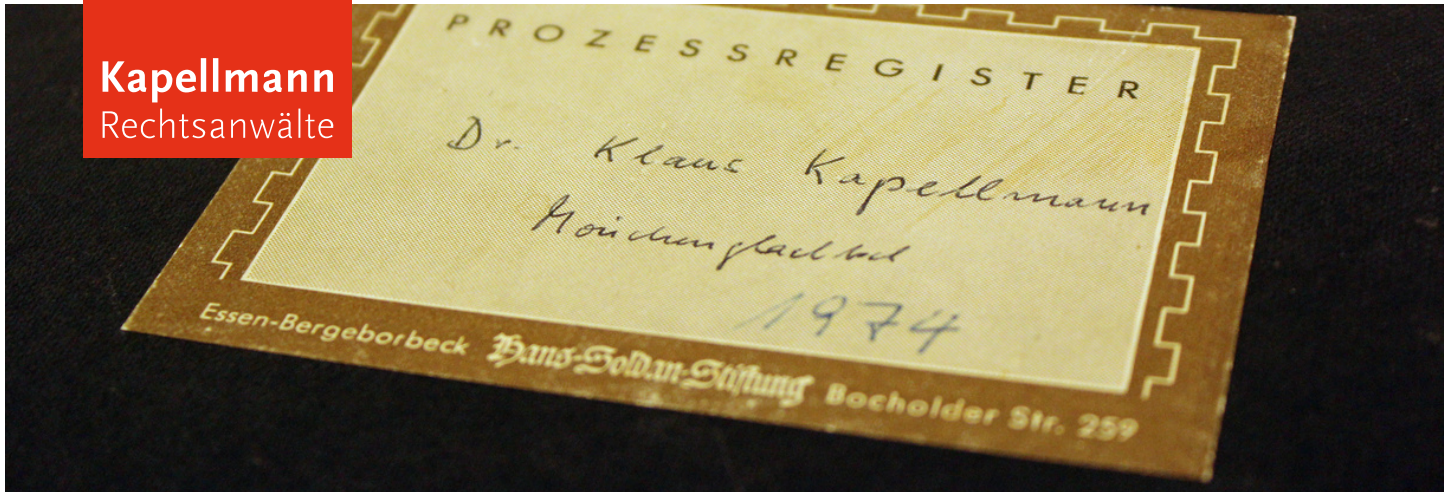 Kapellmann
Rechtsanwälte
PROZESSREGISTER
Dr. Klaus Kapellmann
Mönchengladbach
1974
Essen-Bergeborbeck Hans-Soldan-Stiftung Bocholder Str. 259